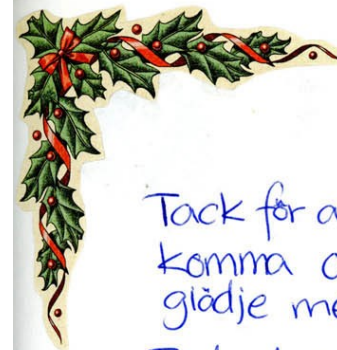 Tack för a
komma
glädje me